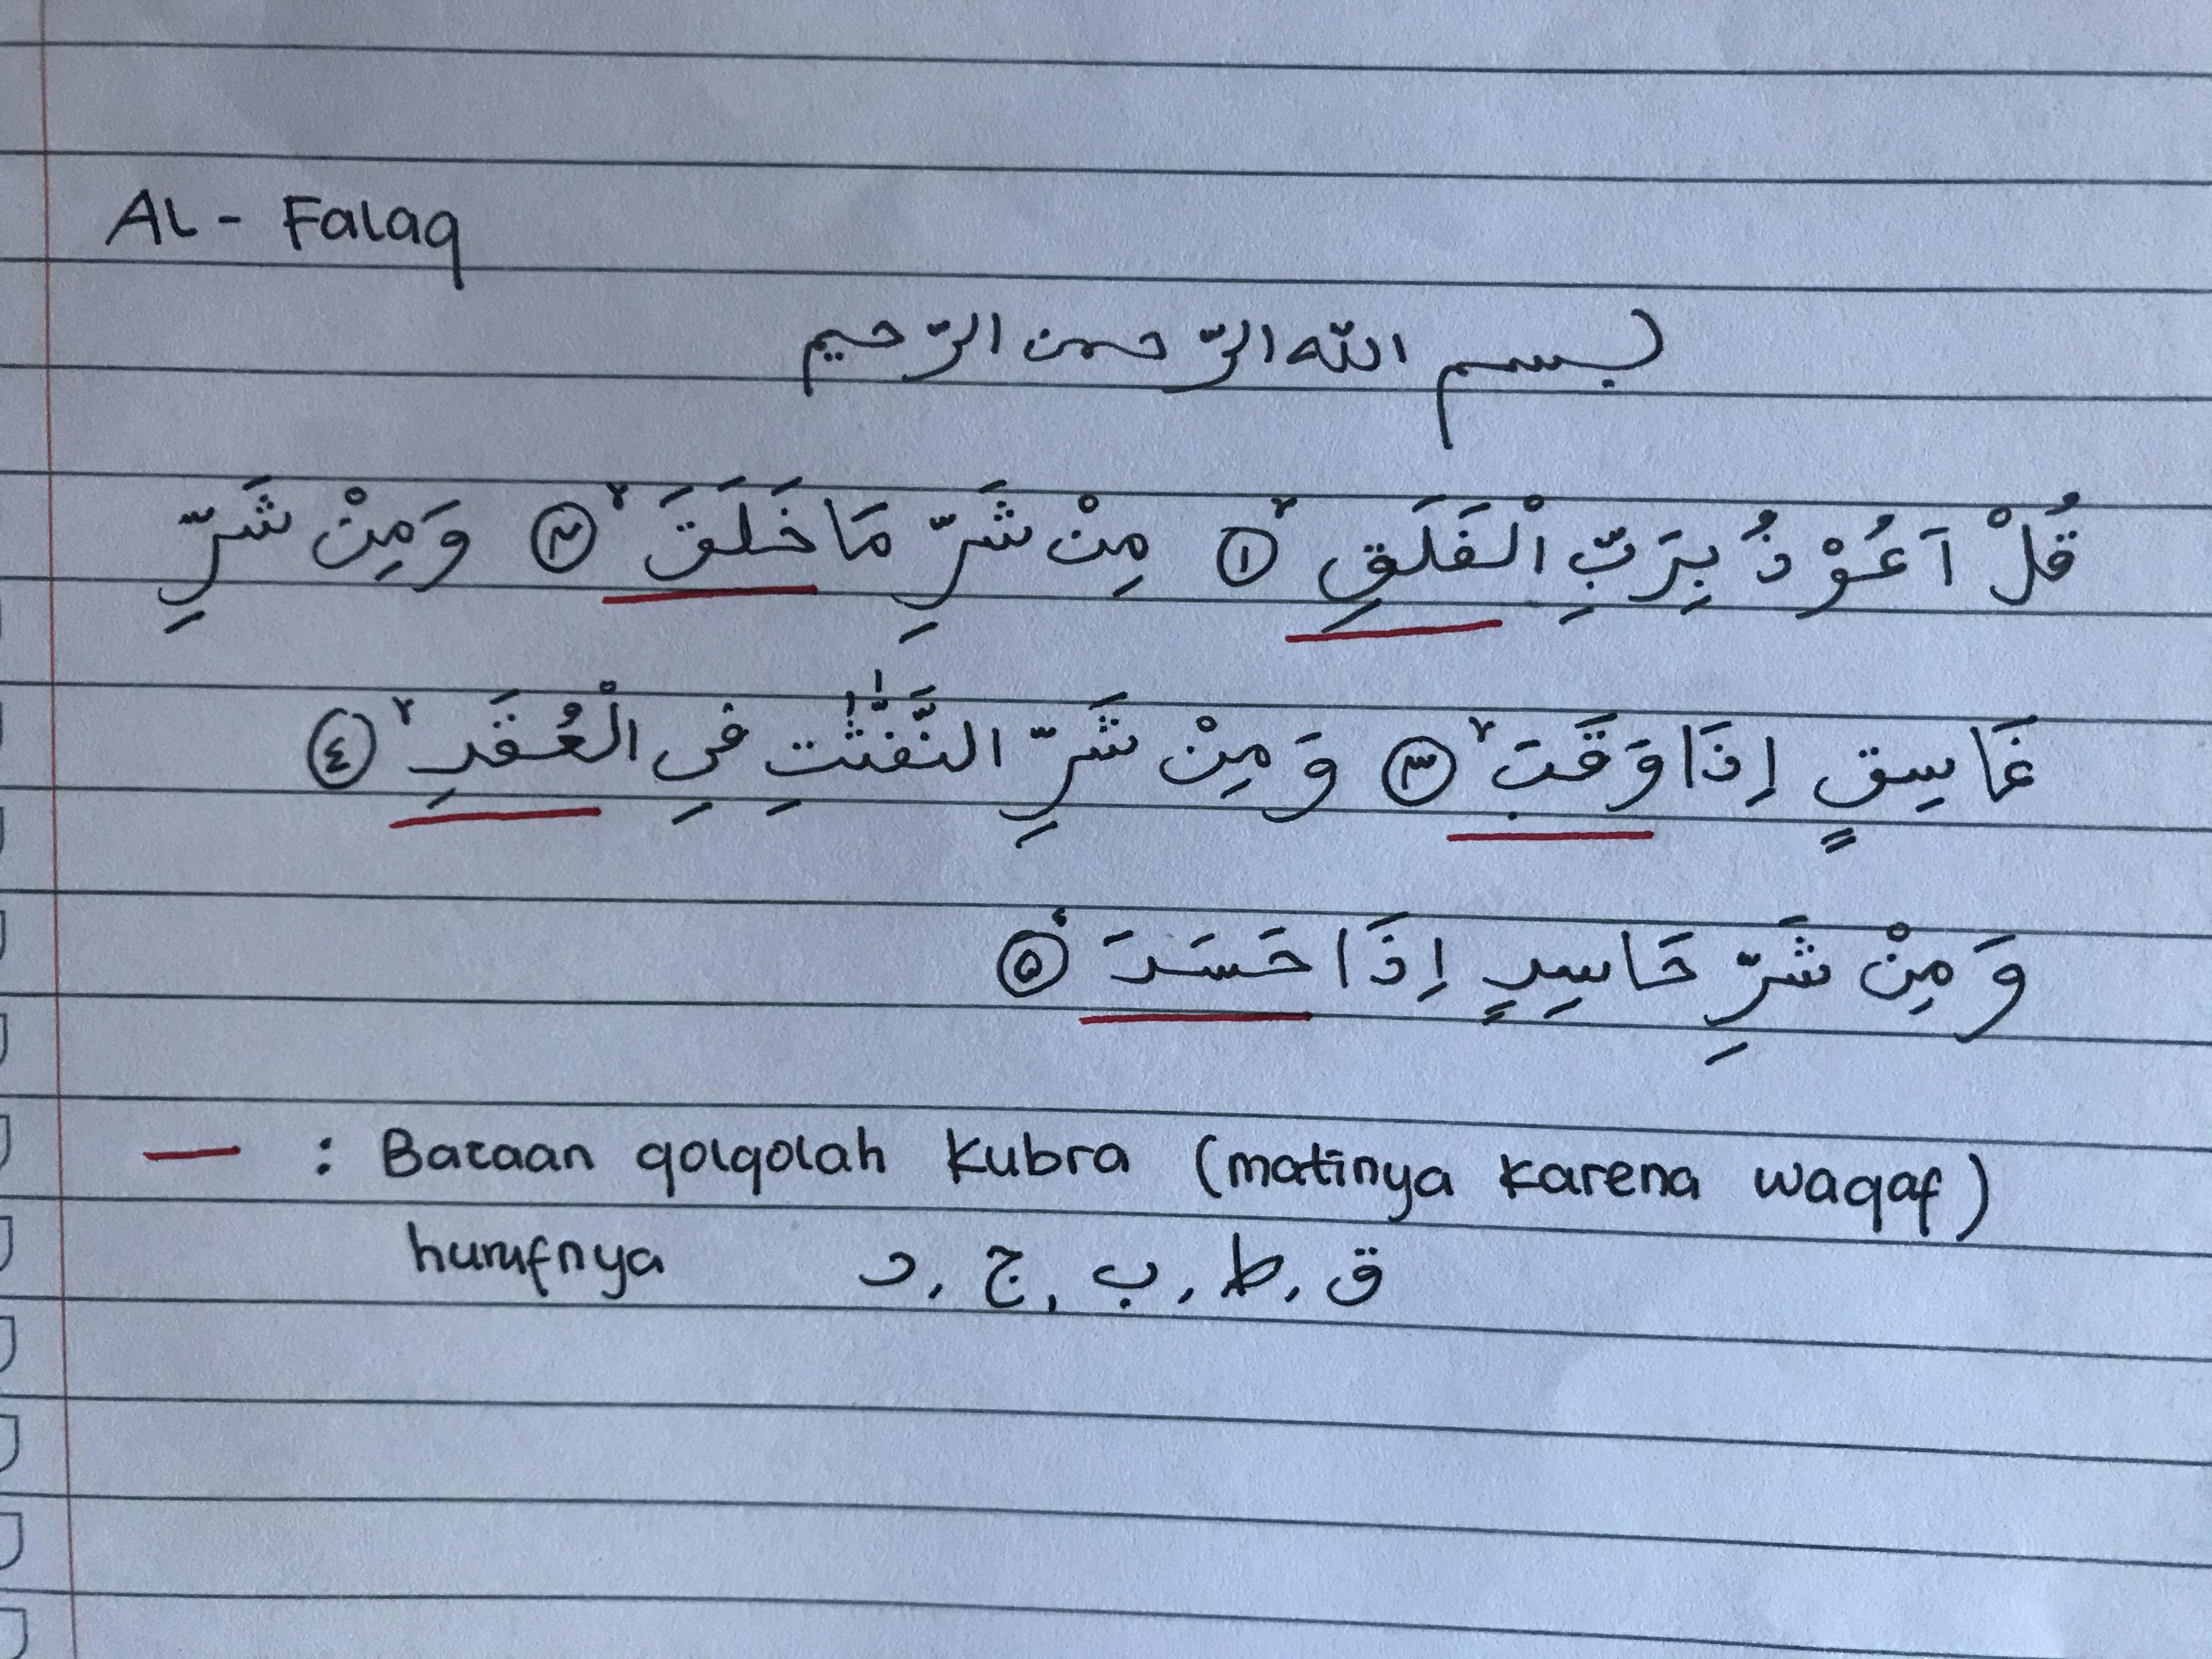 AL - Falaq
بسم الله الرّحمن الرّحيم
قُلْ اَعُوْذُ بِرَبِّ الْفَلَقِۙ ① مِنْ شَرِّ مَا خَلَقَۙ ② وَمِنْ شَرِّ
غَاسِقٍ اِذَا وَقَبَۙ ③ وَمِنْ شَرِّ النَّفّٰثٰتِ فِى الْعُقَدِۙ ④
وَمِنْ شَرِّ حَاسِدٍ اِذَا حَسَدَ ⑤
— : Bacaan qolqolah kubra (matinya karena waqaf)
hurufnya ق, ط, ب, ج, د